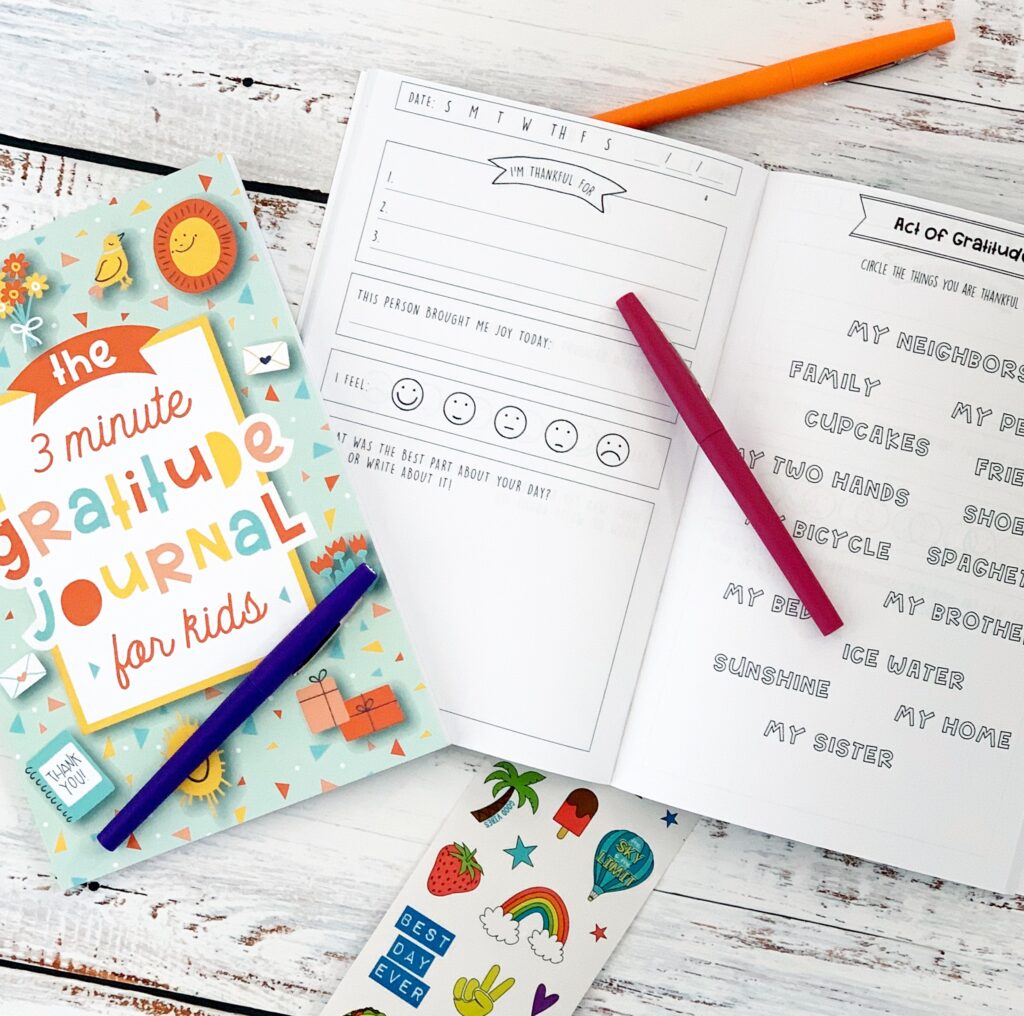 the
3 minute
gratitude
journal
for kids
THANK
YOU!
DATE: S M T W TH F S __/__/__
I'M THANKFUL FOR
1.
2.
3.
THIS PERSON BROUGHT ME JOY TODAY:
I FEEL:
WAS THE BEST PART ABOUT YOUR DAY?
OR WRITE ABOUT IT!
Act of Gratitude
CIRCLE THE THINGS YOU ARE THANKFUL
MY NEIGHBORS
FAMILY
MY
CUPCAKES
MY TWO HANDS
SHOE
BICYCLE
MY BED
MY BROTHE
ICE WATER
SUNSHINE
MY HOME
MY SISTER
GOOD VIBES
SKY
LIMIT
BEST
DAY
EVER